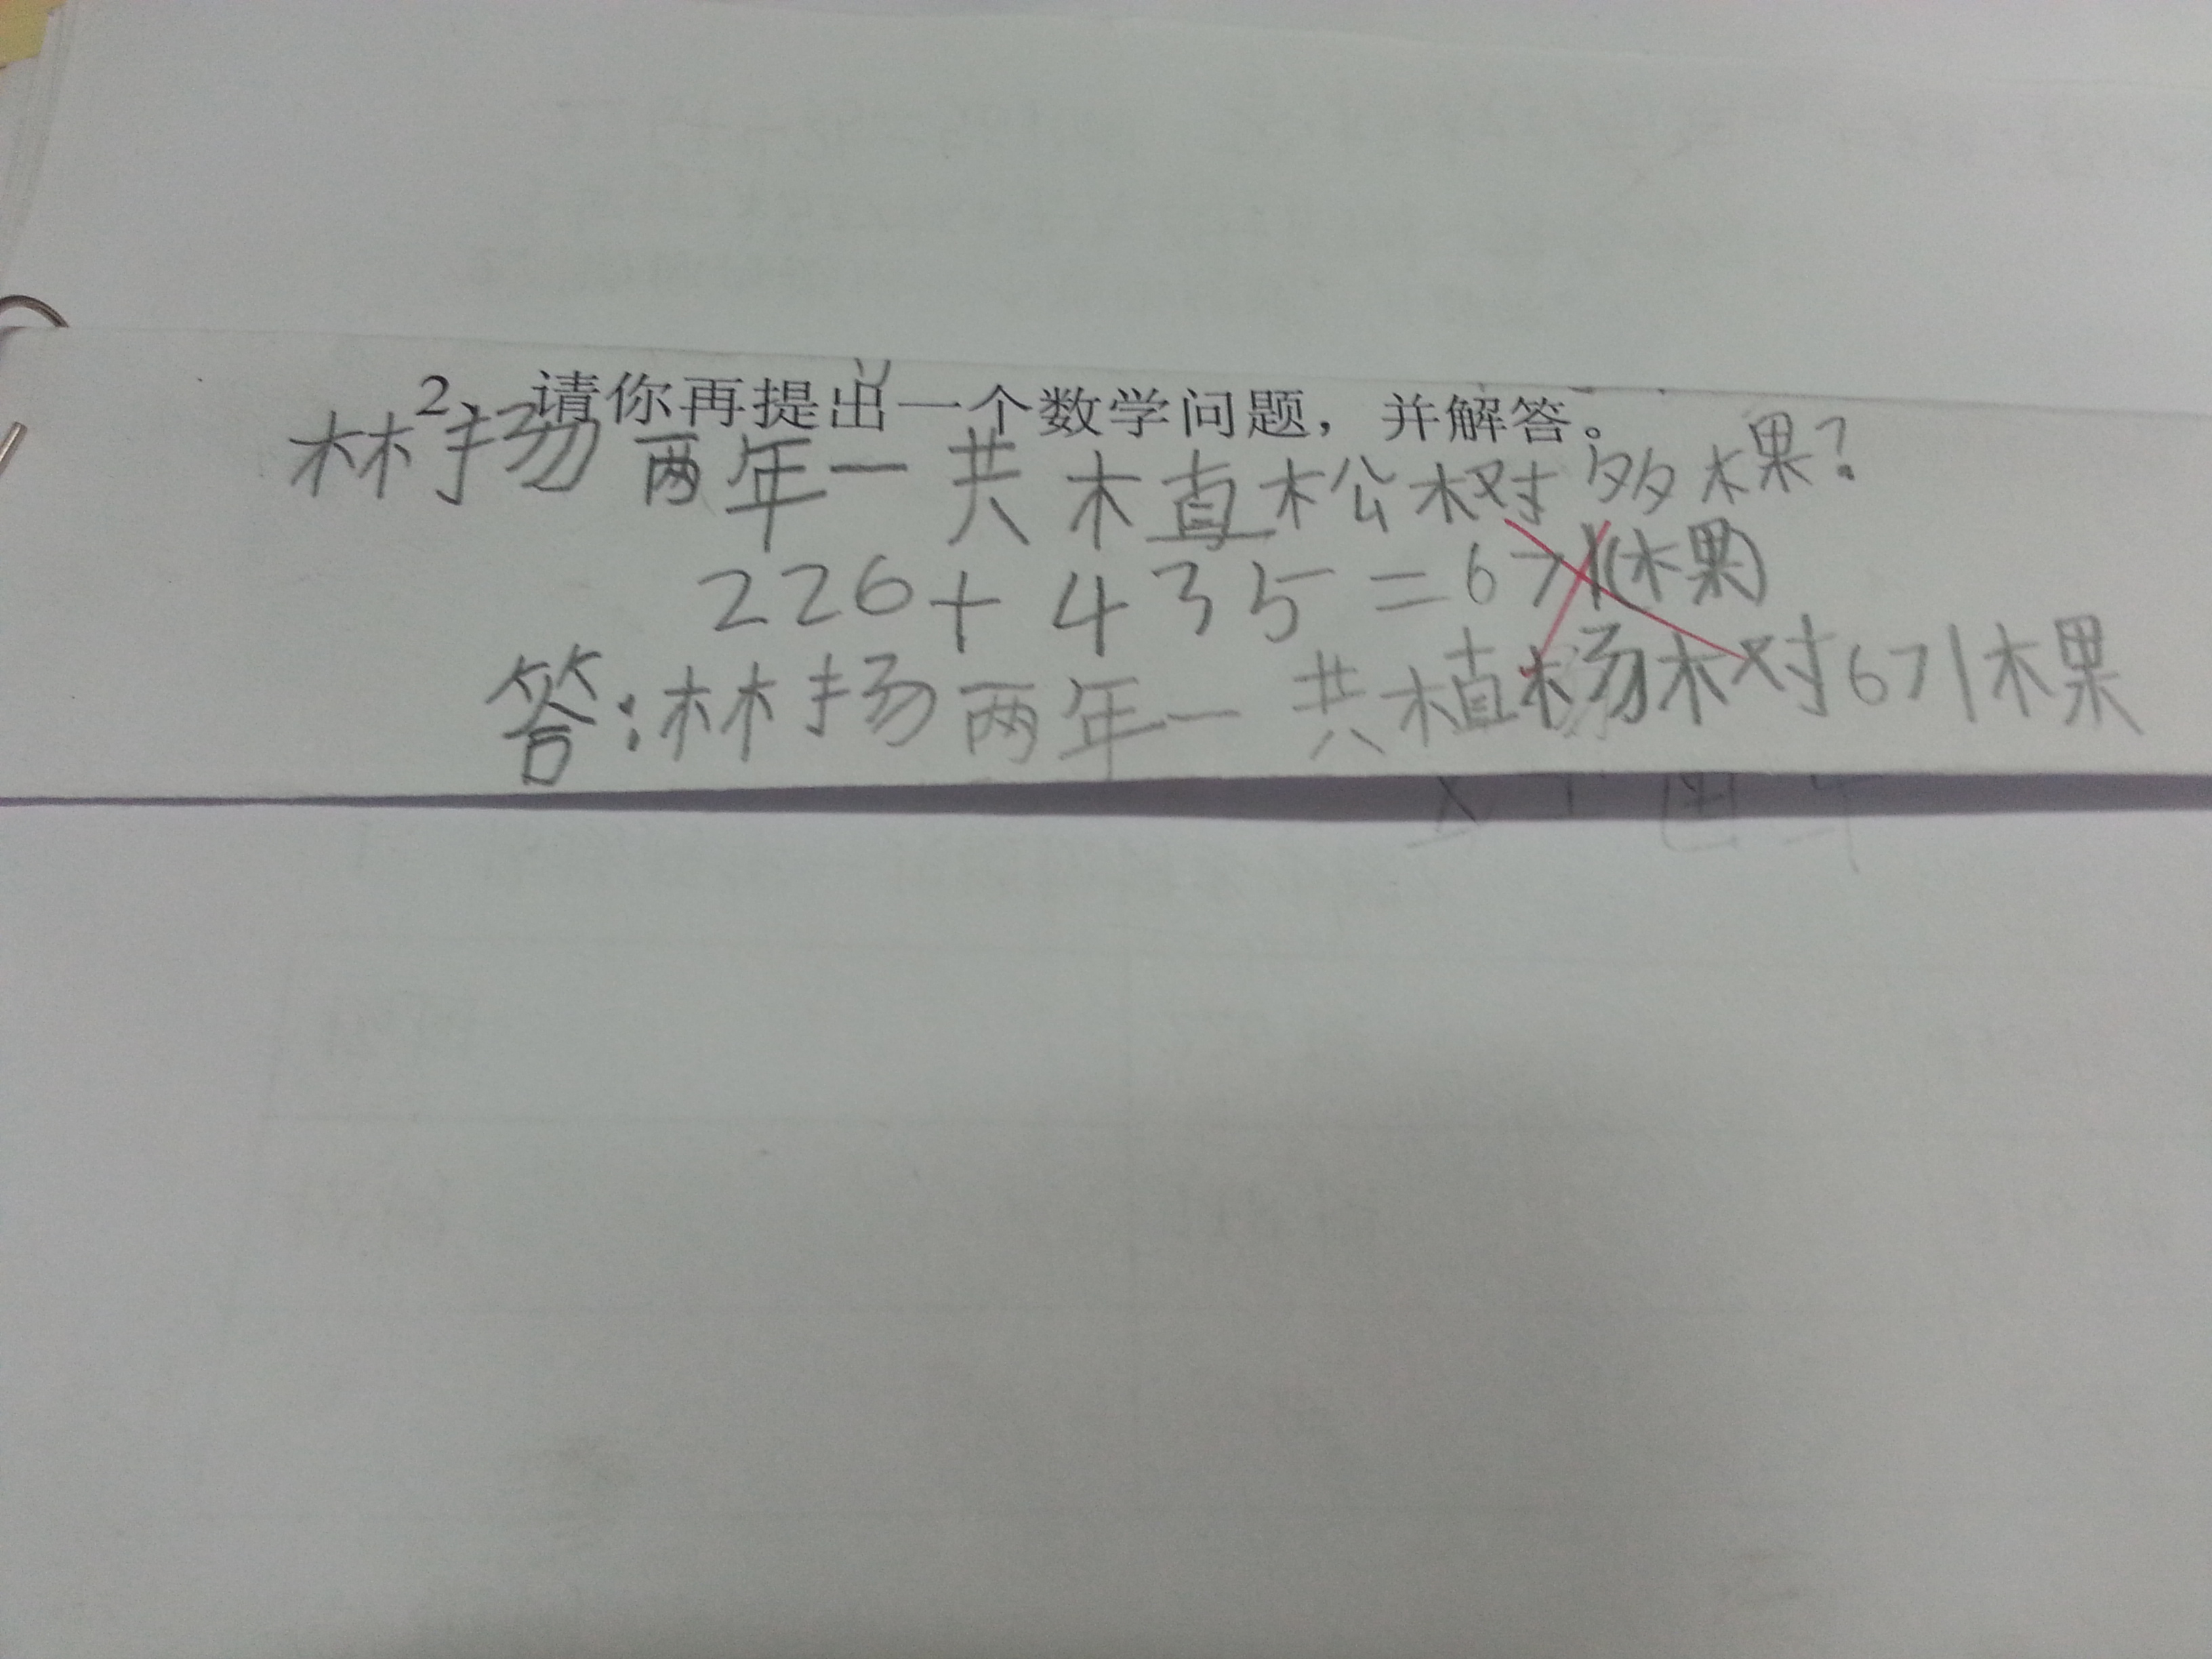 2、请你再提出一个数学问题，并解答。
林扬两年一共植松树多棵?
226+435=671(棵)
答:林扬两年一共植杨树671棵